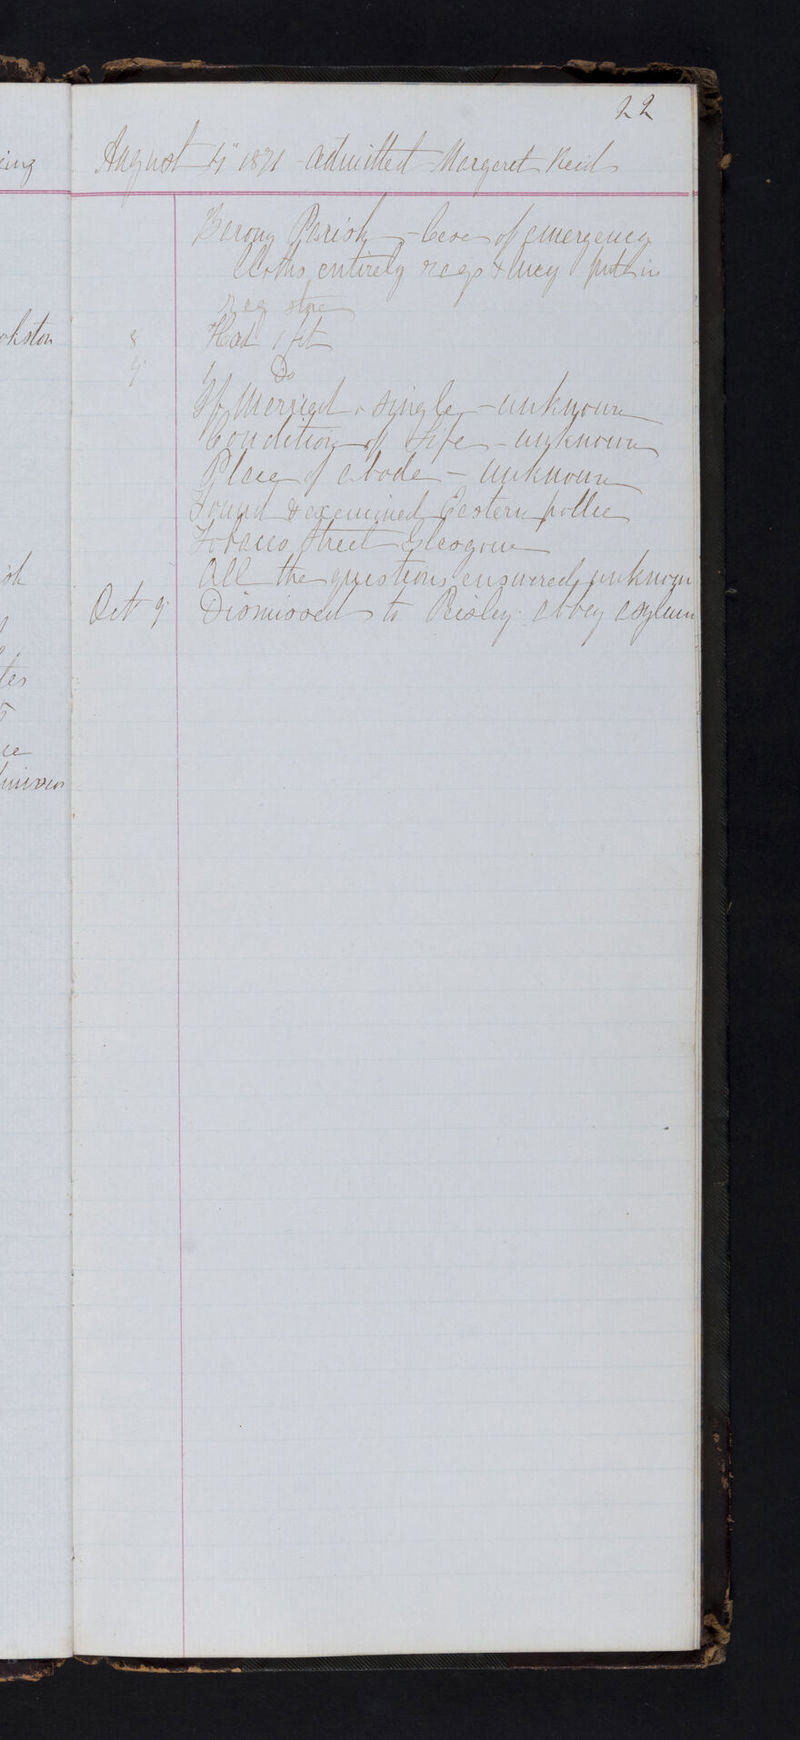 22
August 4" 1871 admitted Margaret Reid
Barony Parish - Case of emergency
Cloths entirely rags & they put in
rag store
8 Had 1 fit
9 1 Do
If Married or single - unknown
Condition of Life - unknown
Place of abode - unknown
Found & examined Eastern police
Tobacco Street Glasgow
All the questions answered unknown
Oct 9 Dismissed to Paisley abbey asylum